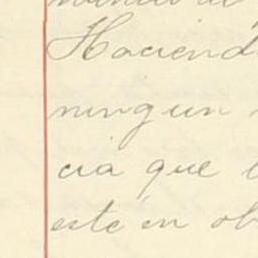 Haciend
ningun
cia que l
este en ob